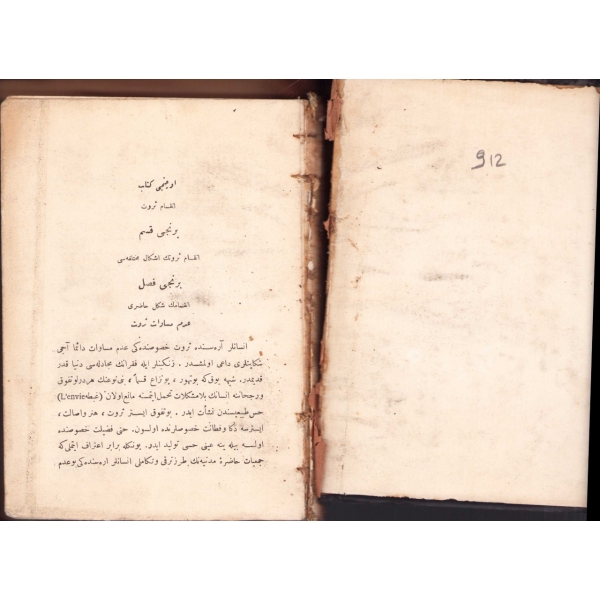 اوچنجی كتاب
انقسام ثروت
برنجی قسم
انقسام ثروتك اشكال مختلفه‌سی
برنجی فصل
انقسامك شكل حاضری
عدم مساوات ثروت
انسانلر آره‌سنده ثروت خصوصنده‌كی عدم مساوات دائما آجی
شكایتلری داعی اولمشدر. زنكینلر ایله فقرانك مجادله‌سی دنیا قدر
قدیمدر. شبهه یوق كه بو تهور، بو نزاع قسماً، بنی نوعنك هر درلو تفوق
و رجحاننه انسانك بلا مشكلات تحمل ایتمسنه مانع اولان (غبطه L'envie)
حس طبیعیسندن نشأت ایدر. بو تفوق ایستر ثروت، هنر و اصالت،
ایسترسه ذكا و فطانت خصوصلرنده اولسون. حتی فضیلت خصوصنده
اولسه بیله ینه عینی حسی تولید ایدر. بونكله برابر اعتراف ایتملی كه
جمعیات حاضرهٔ مدنیه‌نك طرز ترقی و تكاملی انسانلر آره‌سنده‌كی بو عدم
912